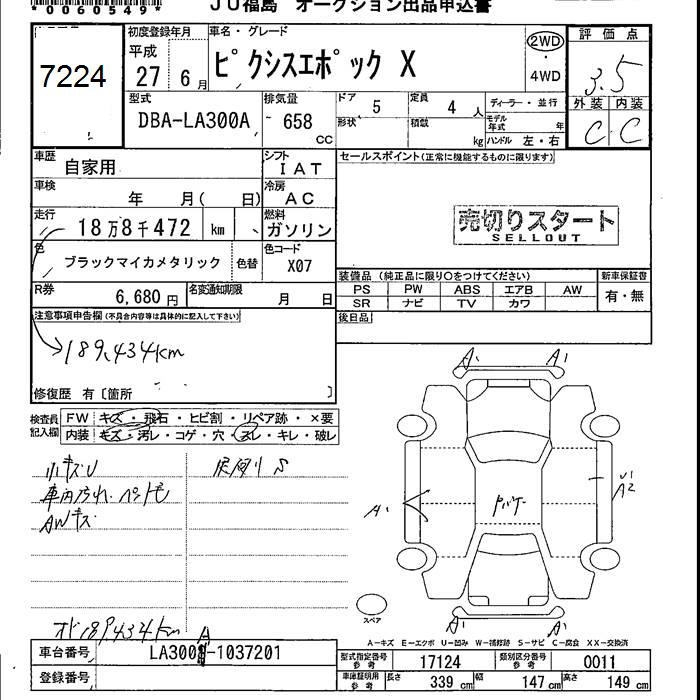 *0060549*
JU福島 オークション出品申込書
7224
初度登録年月
平成
27 6月
車名・グレード
ピクシスエポック X
2WD
4WD
評価点
3.5
外装 内装
C C
型式
DBA-LA300A
排気量
658
cc
ドア 5
形状
定員 4 人
積載 kg
ディーラー・並行
モデル年式 年
ハンドル 左・右
車歴
自家用
シフト
IAT
セールスポイント(正常に機能するものに限ります)
車検
年 月( 日)
冷房
AC
走行
18万8千472 km
燃料
ガソリン
売切りスタート
SELLOUT
色
ブラックマイカメタリック
色替
色コード
X07
装備品 (純正品に限り○をつけてください)
新車保証書
PS PW ABS エアB AW
SR ナビ TV カワ
有・無
R券
6,680 円
名変通知期限
月 日
後日品
注意事項申告欄(不具合内容等は具体的に記入して下さい)
189,434km
修復歴 有〔箇所 〕
検査員記入欄
FW キズ・飛石・ヒビ割・リペア跡・×要
内装 キズ・汚レ・コゲ・穴・スレ・キレ・破レ
小キズU
車内汚れ
AWキズ
A1 A1
A1
U1
A2
A1 A1
スペア
A-キズ E-エクボ U-凹み W-補修跡 S-サビ C-腐食 XX-交換済
189,434km
車台番号
LA300A-1037201
登録番号
型式指定番号 参考
17124
類別区分番号 参考
0011
車庫証明用 参考
長さ 339 cm
幅 147 cm
高さ 149 cm